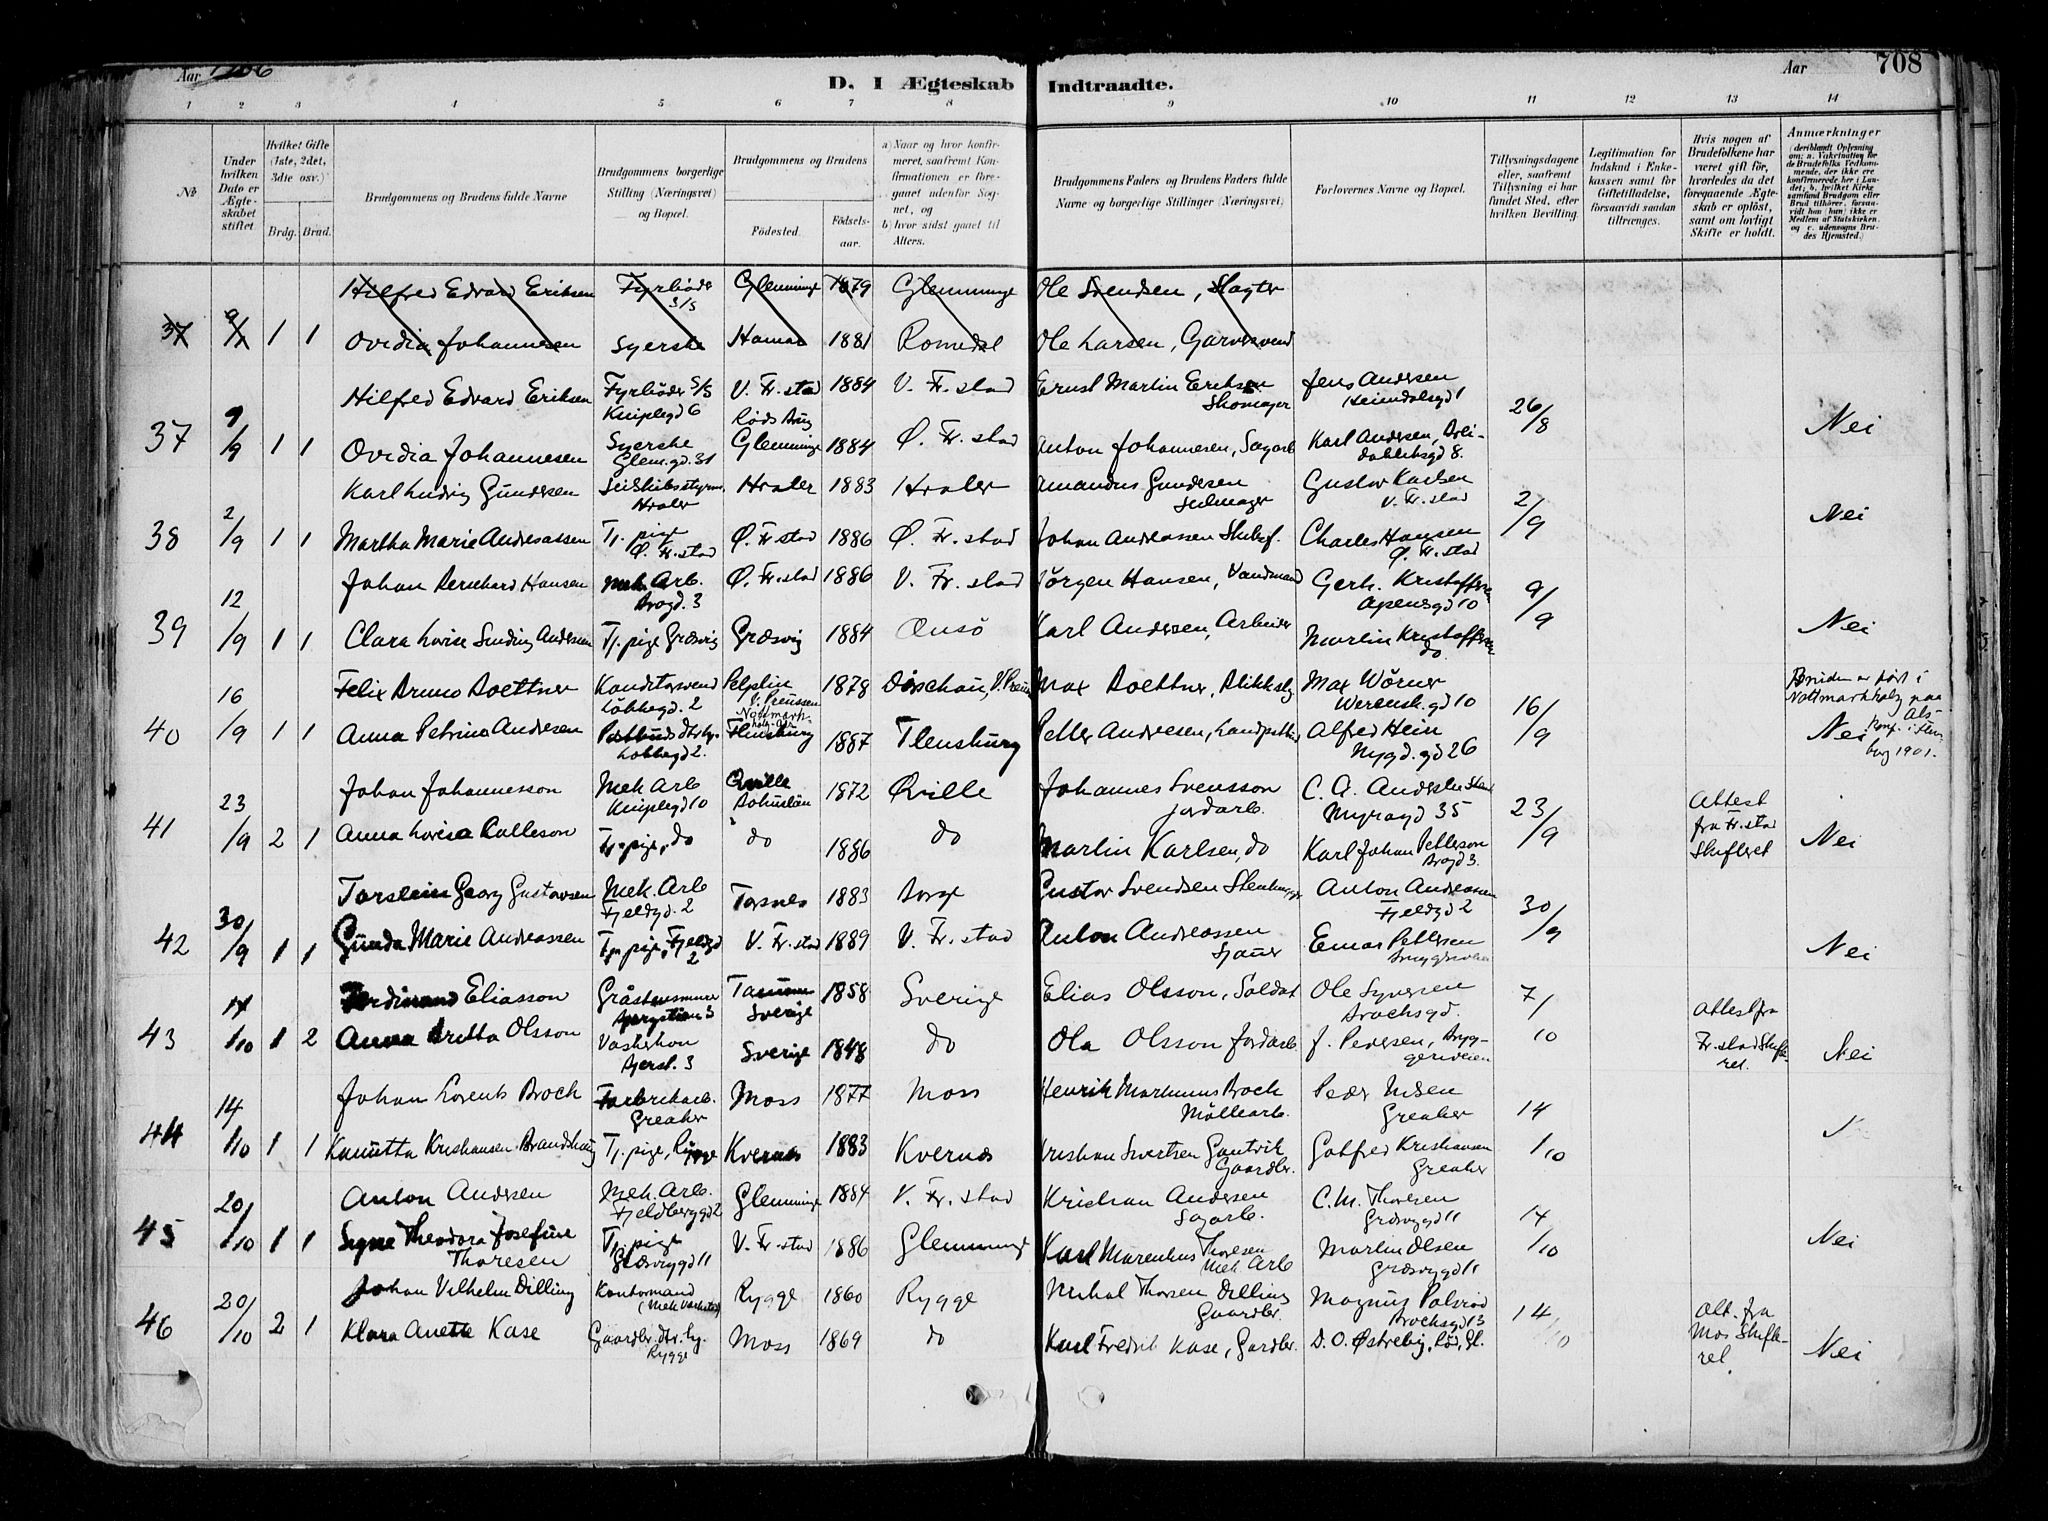 Aar 1906
D. I Ægteskab Indtraadte.
Aar
708
1 2 3 4 5 6 7 8 9 10 11 12 13 14
No
Under hvilken Dato er Ægteskabet stiftet
Hvilket Gifte (1ste, 2det, 3die osv.)
Brdg. Brud.
Brudgommens og Brudens fulde Navne
Brudgommens borgerlige Stilling (Næringsvei) og Bopæl.
Brudgommens og Brudens
Fødested.
Fødselsaar.
a) Naar og hvor konfirmeret, saafremt Konfirmationen er foregaaet udenfor Sognet, og
b) hvor sidst gaaet til Alters.
Brudgommens Faders og Brudens Faders fulde Navne og borgerlige Stillinger (Næringsvei)
Forlovernes Navne og Bopæl.
Tillysningsdagene eller, saafremt Tillysning ei har fundet Sted, efter hvilken Bevilling.
Legitimation for Indskud i Enkekassen samt for Giftetilladelse, forsaavidt saadan tiltrænges.
Hvis nogen af Brudefolkene har været gift før, hvorledes da det foregaaende Ægteskab er opløst, samt om lovligt Skifte er holdt.
Anmærkninger
(deriblandt Oplysning om: a. Vakcination for de Brudefolks Vedkommende, der ikke ere konfirmerede her i Landet; b. hvilket Kirkesamfund Brudgom eller Brud tilhører, forsaavidt han (hun) ikke er Medlem af Statskirken, og c. udensogns Brudes Hjemsted.)
Hilfred Edvard Eriksen Fyrbøder S/S Glemminge 1879 Glemminge Ole Svendsen, Slagter
37 1 1 Ovidia Johannesen Syerske Hamar 1881 Romedal Ole Larsen, Garversvend
Hilfred Edvard Eriksen Fyrbøder S/S Kniplegd 6 V. Fr. stad 1884 V. Fr. stad Ernst Martin Eriksen Skomager Jens Andersen Heimdalsgd 1
37 9/9 1 1 Ovidia Johannesen Syerske Glem.gd. 31 Glemminge 1884 Ø. Fr. stad Anton Johannesen, Sagarb Karl Andersen, 26/8 Nei
Karl Ludvig Gundersen Hvaler 1883 Hvaler Amandus Gundersen Seilmager Gustav Karlsen V. Fr. stad
38 2/9 1 1 Martha Marie Andreassen Tj. pige Ø. Fr. stad Ø. Fr stad 1886 Ø. Fr. stad Johan Andreassen Charles Hansen Ø. Fr. stad 2/9 Nei
Johan Bernhard Hansen Mek Arb. Brogd. 3 Ø. Fr. stad 1886 V. Fr. stad Jørgen Hansen, Vandmand Gerh. Kristoffersen Apenesgd 10
39 12/9 1 1 Clara Lovise Sending Andersen Tj. pige Græsvig Græsvig 1884 Onsø Karl Andersen, Arbeider Martin Kristoffersen do 9/9 Nei
Felix Bruno Boettner Konditorsvend Løkkegd. 2 Pelplin V. Preussen 1878 Dirschau, V. Preus Max Boettner, Max Wörner Werensk.gd 10
40 16/9 1 1 Anna Petrine Andresen Løkkegd 2. Flensburg 1887 Flensburg Petter Andresen, Alfred Hein Nygd. gd 26 16/9 Nei
Bruden er født i Nottmarkholz paa Als Konf. i Flensburg 1901.
Johan Johannesson Mek Arb Kniplegd 10 Qville Bohuslän 1872 Qville Johannes Svensson jordarb. C. A. Andersen Myragd 35
41 23/9 2 1 Anna Lovisa Calleson Tj. pige, do do 1886 do Martin Karlsen, do Karl Johan Petterson Brogd 3. 23/9 Attest fra Fr. stad Skifteret Nei
Torstein Georg Gustavsen Mek. Arb Fjeldgd. 2 Torsnes 1883 Borge Gustav Svendsen Stenhugger Anton Andreassen Fjeldgd 2
42 30/9 1 1 Gunda Marie Andreassen Tj. pige, Fjeldgd 2 V. Fr. stad 1889 V. Fr. stad Anton Andreassen Sjauer Einar Pettersen 30/9 Nei
Ferdinand Eliasson Tanum Sverige 1858 Sverige Elias Olsson, Soldat Ole Syversen Brochsgd.
43 14/10 1 2 Anna Britta Olsson Vaskekon Sverige 1848 do Ola Olsson Jordarb. J. Pedersen, Bryggeriveien 7/10 Attest fra Fr. stad Skifteret. Nei
Johan Lorents Broch Fabrikarb. Greaker Moss 1877 Moss Henrik Martinius Broch Møllearb. Peder Nilsen Greaker
44 14/10 1 1 Kanutta Kristiansen Brandthaug Tj. pige, Kvernes 1883 Kvernes Kristian Sivertsen Gautvik Gaardbr. Gotfred Kristiansen Greaker 14/10
Anton Andersen Mek. Arb. Fjeldberggd 2 Glemminge 1884 V. Fr. stad Kristian Andersen Sagarb. C. M. Thoresen Græsviggd 11
45 20/10 1 1 Signe Theodora Josefine Thoresen Tj. pige Græsviggd 11 V. Fr. stad 1886 Glemminge Karl Marenius Thoresen Mek Arb Martin Olsen Græsviggd 11 14/10 Nei
Johan Vilhelm Dilling Kontormand (Mek Værksted) Rygge 1860 Rygge Mikal Thorsen Dilling Gaardbr. Magnus Palsrød Brochsgd 13
46 20/10 2 1 Klara Anette Kase Gaardbr. dtr. Rygge Moss 1869 do Karl Fredrik Kase, Gardbr. D. O. Østrebig, 14/10 Att. fra Mos Skifteret Nei